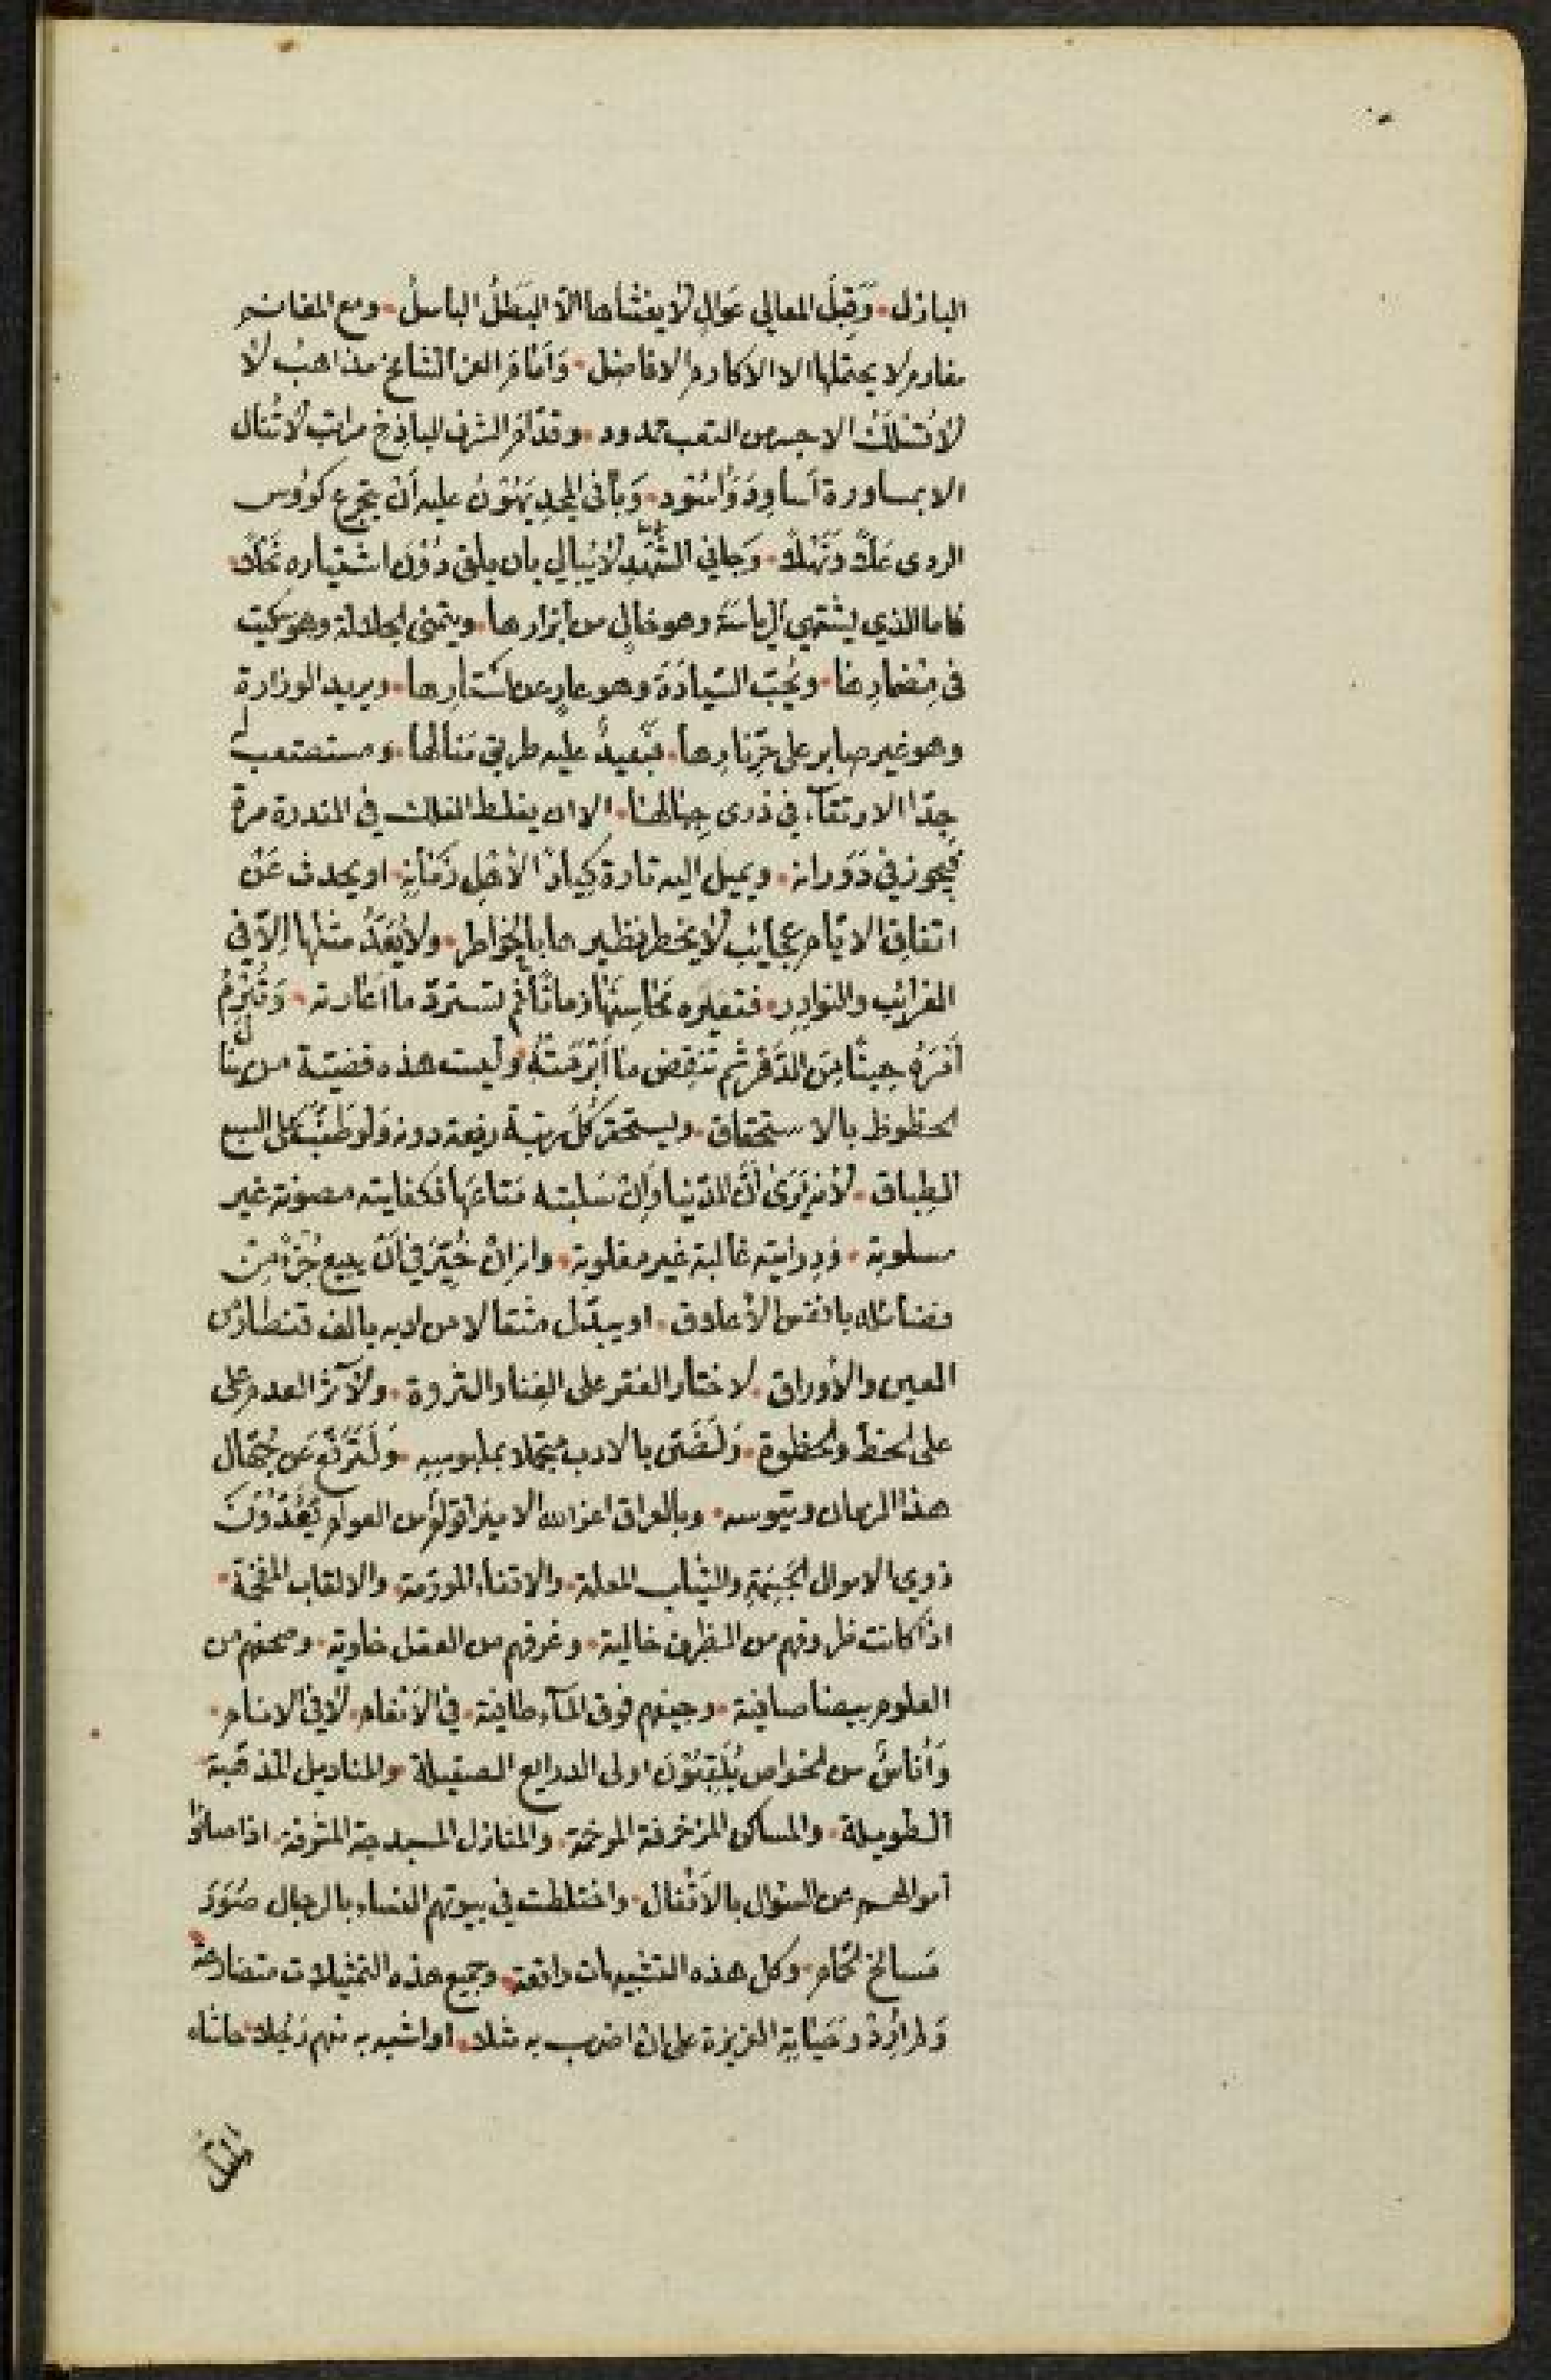 البازل • وَقِبَلَ المعالي عَوَالٍ لا يغشاها الّا البَطَلُ الباسلُ • ومع المفاخر
مغارم لا يحتملها الا الاكارم الافاضل • وَأمَامَ العز الشامخ مذاهبُ لا
لا تُسْلَكُ الا من التعب • وقدّام الشرف الباذخ مراتب لا تُنال
الا بمساورة أساوِدَ وَأسُود • وَبَانى المجدِ يَهُونُ عليه أنْ يتجرع كؤوس
الردى عَلَلًا وَنَهَلًا • وَجانى الشُهْدِ لا يُبالي بان يلقى دُوْنَ اشتياره نَحْلًا •
فاما الذي يشتهي الرياسَةَ وهو خالٍ من أبزارها • ويتمنى الجلالة وهو سُكَيت
فى مِضمارِها • ويُحِبّ السِيَادَةَ وهو عارٍ عن استارِها • ويريد الوزارة
وهو غير صابر على حَرِّ نارِها • فبَعيدٌ عليه طريق مَنالها • ومستصعب
جِدّا الارتقآء في ذرى جبالها • الا ان يغلط الفلك في الندرة مرة
فيجوز في دَوَرانه • ويميل اليه تارة كِيادًا لأهْلِ زَمَانِهِ • او يحدث عَنْ
اتفاق الايّام عجايب لا يخطر نظيرها بالخواطر • ولا يُعَدُّ مثلها إلّا في
الغرائب والنوادر • فتعيره مَحَاسِنَهَا زمانًا ثم تسترِدّ ما اعَارته • وَتُبْرِمُ
أمْرَهُ حِينًا مِنَ الدَهْر ثم تنقِض ما أبْرَمَتْهُ • وليست هذه قضيّة من ينال
الحظوظ بالاستحقاق • ويستحقر كُلَّ رتبة رفيعة دونه وَلَو طَنَّبَتْ على السبع
الطِباق • لأنه يَرَى أَنَّ الدّنيا وَإنْ سَلبته مَتاعَهَا فكفايته مصونة غير
مسلوبة • وَدِرايَته غالبة غير مغلوبة • وانه إنْ خُيّرَ في اَنْ يبيع جُزْءً مِن
فضائله بانفس الأعلاق • او يبدّل مثقالا من ادبه بالف قنطار من
العين والأوراق • لاختار الفقر على الغِناء والثروة • ولآثَر العدم على
على الحظ والحظوة • وَلَرَضَى بالادب متجملا بملبوسِه • وَلَتَرَفّعَ عَن جُهّال
هذا الزمان وتيوسه • وبالعراق اعز الله الامير اقوامٌ من العوام يُعَدُّوْنَ
ذوي الاموال الجَسِيْمَةِ والثياب المعلمة • والاقفاء المورّمة • والالقاب المفخمة •
اذا كانت ظروفهم من الظرف خالية • وغرفهم من العقل خاوية • وصحفهم من
العلوم بيضا صافية • وجيفهم فوق المآء طافية • في الأنعام • لا في الانام •
وَأناسٌ من الخواص يُلَقّبُوْنَ اولى الدراريع الصقيلة • والمناديل المذهّبة
الطويلة • والمساكن المزخرفة المرخمة • والمنازل المشرفة • اذا صانُوا
أموالهم عن السؤال بالأقفال • واختلطت في بيوتهم النساء بالرجال صُوَرَ
مَسالخ الحمام • وكل هذه التشبيهات واقعة • وجميع هذه التمثيلات متضارعة
وَلم أُرِدْ وَحَيَاتِهِ العزيزة على ان اضرب به مثلا • او اشبه به منهم رَجُلا • حاشاه